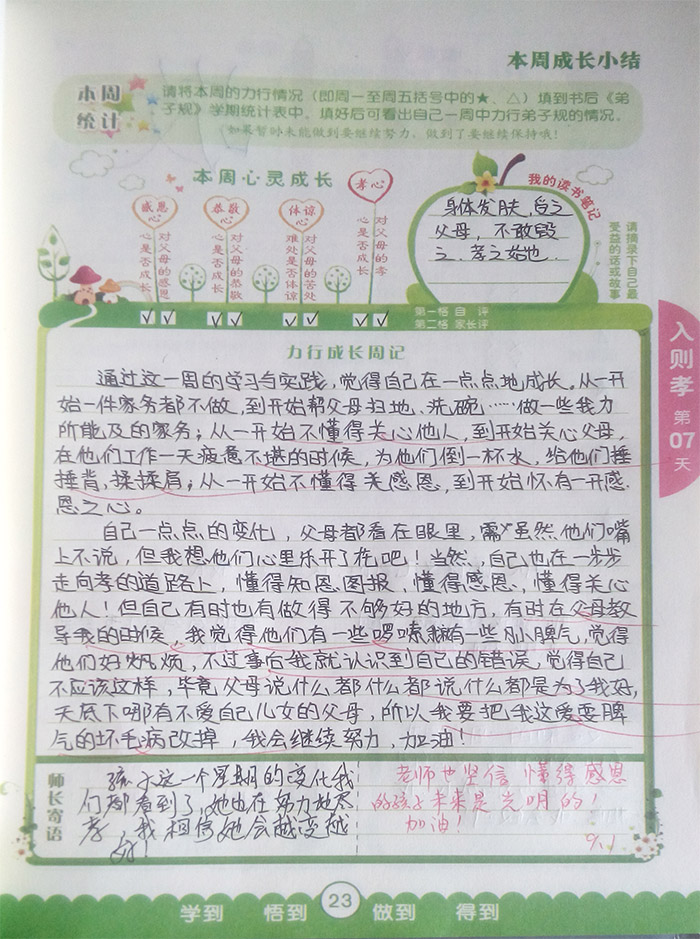 本周成长小结
本周
统计
请将本周的力行情况（即周一至周五括号中的★、△）填到书后《弟
子规》学期统计表中。填好后可看出自己一周中力行弟子规的情况。
（如果暂时未能做到要继续努力，做到了要继续保持哦！
本周心灵成长
感恩
心
恭敬
心
体谅
心
孝心
对父母的感恩
心是否成长
对父母的恭敬
心是否成长
对父母的苦处
难处是否体谅
对父母的孝
心是否成长
我的读书笔记
身体发肤，受之
父母，不敢毁
之．孝之始也．
请摘录下自己最
受益的话或故事
第一格 自 评
第二格 家长评
力行成长周记
通过这一周的学习与实践，觉得自己在一点点地成长。从一开
始一件家务都不做，到开始帮父母扫地、洗碗……做一些我力
所能及的家务；从一开始不懂得关心他人，到开始关心父母，
在他们工作一天疲惫不堪的时候，为他们倒一杯水，给他们捶
捶背，揉揉肩；从一开始不懂得关感恩，到开始怀有一开感
恩之心。
自己一点点的变化，父母都看在眼里，虽然他们嘴
上不说，但我想他们心里乐开了花吧！当然，自己也在一步步
走向孝的道路上，懂得知恩图报，懂得感恩，懂得关心
他人！但自己有时也有做得不够好的地方，有时在父母教
导我的时候，我觉得他们有一些啰嗦，有一些小脾气，觉得
他们好烦，不过事后我就认识到自己的错误，觉得自己
不应该这样，毕竟父母说什么都什么都说什么都是为了我好，
天底下哪有不爱自己儿女的父母，所以我要把我这爱耍脾
气的坏毛病改掉，我会继续努力，加油！
师长寄语
孩子这一个星期的变化我
们都看到了，她也在努力地尽
孝，我相信她会越变越
好！
老师也坚信懂得感恩
的孩子未来是光明的！
加油！
9.1
入则孝 第07天
23
学到 悟到 做到 得到